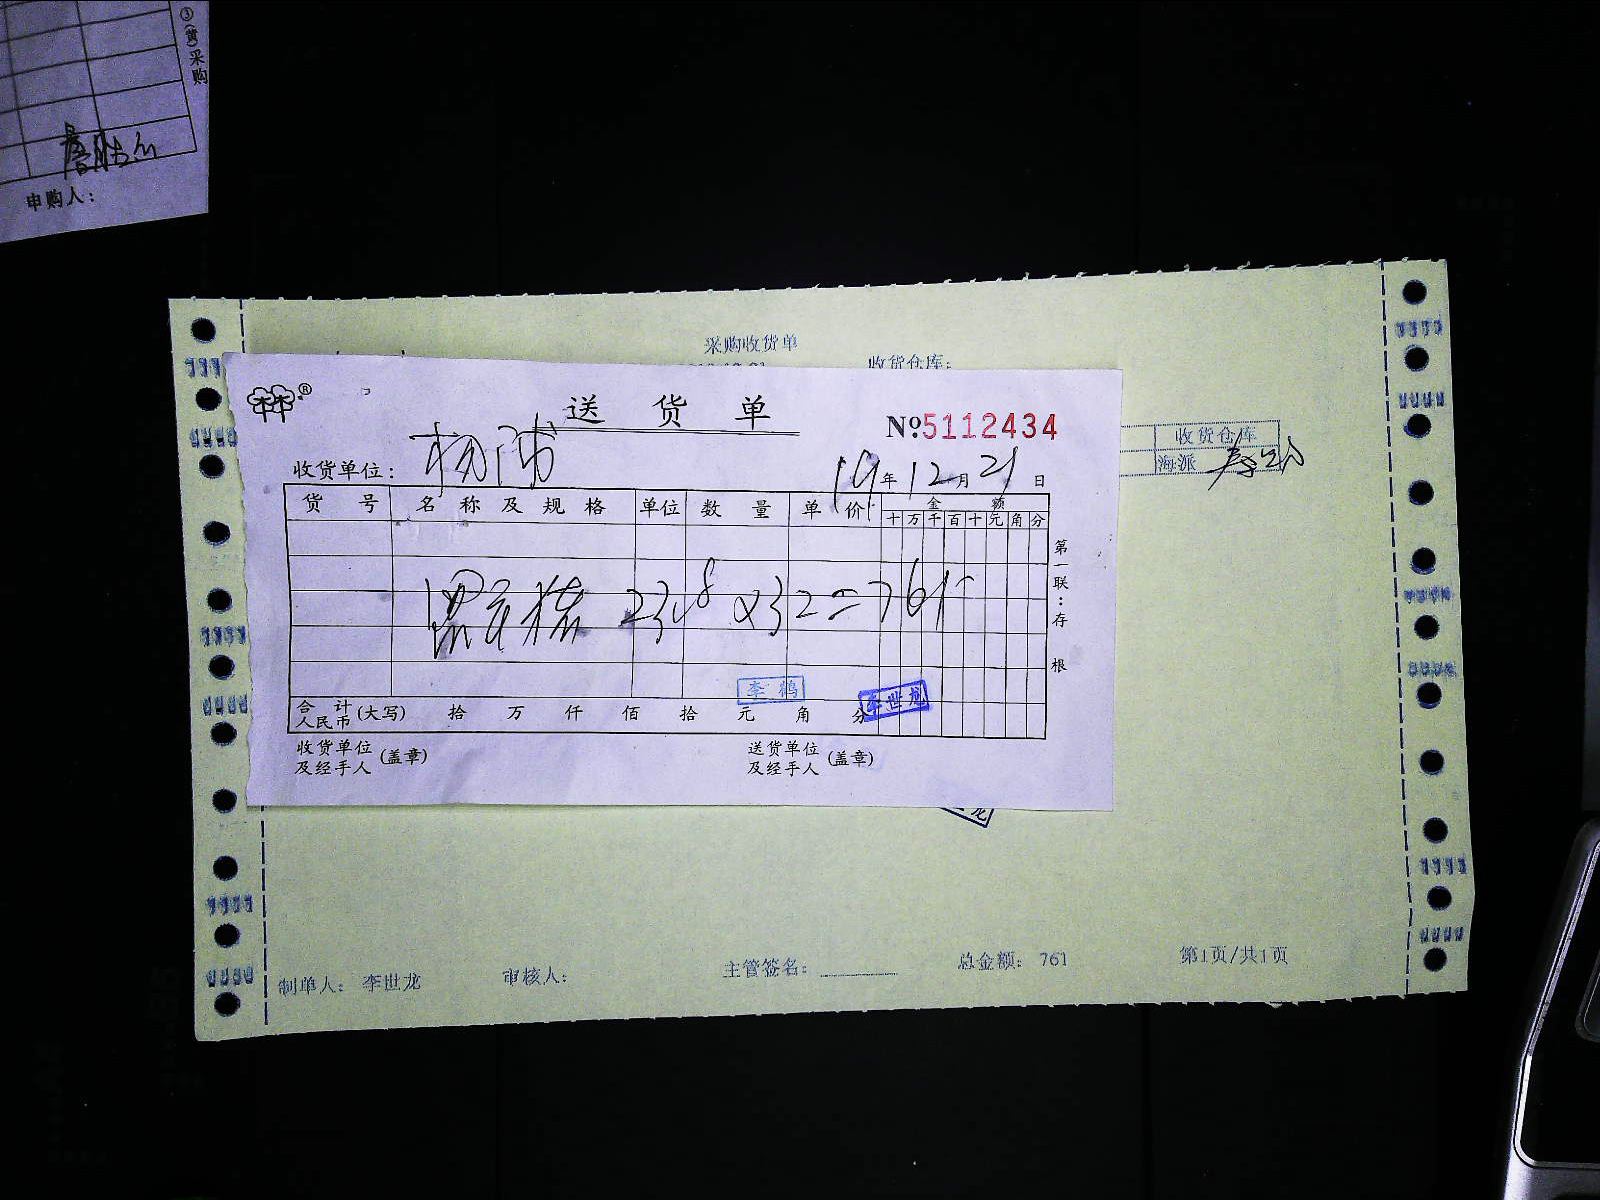 ③(黄)采购
申购人：
采购收货单
收货仓库：
送货单
№5112434
收货单位：杨浦
19年12月21日
货号 名称及规格 单位 数量 单价 金额
十万千百十元角分
23.8×32=761
第一联：存根
李鹤
李世龙
合计人民币(大写) 拾 万 仟 佰 拾 元 角 分
收货单位及经手人(盖章)
送货单位及经手人(盖章)
收货仓库
海派
龙
制单人：李世龙 审核人： 主管签名： 总金额：761 第1页/共1页